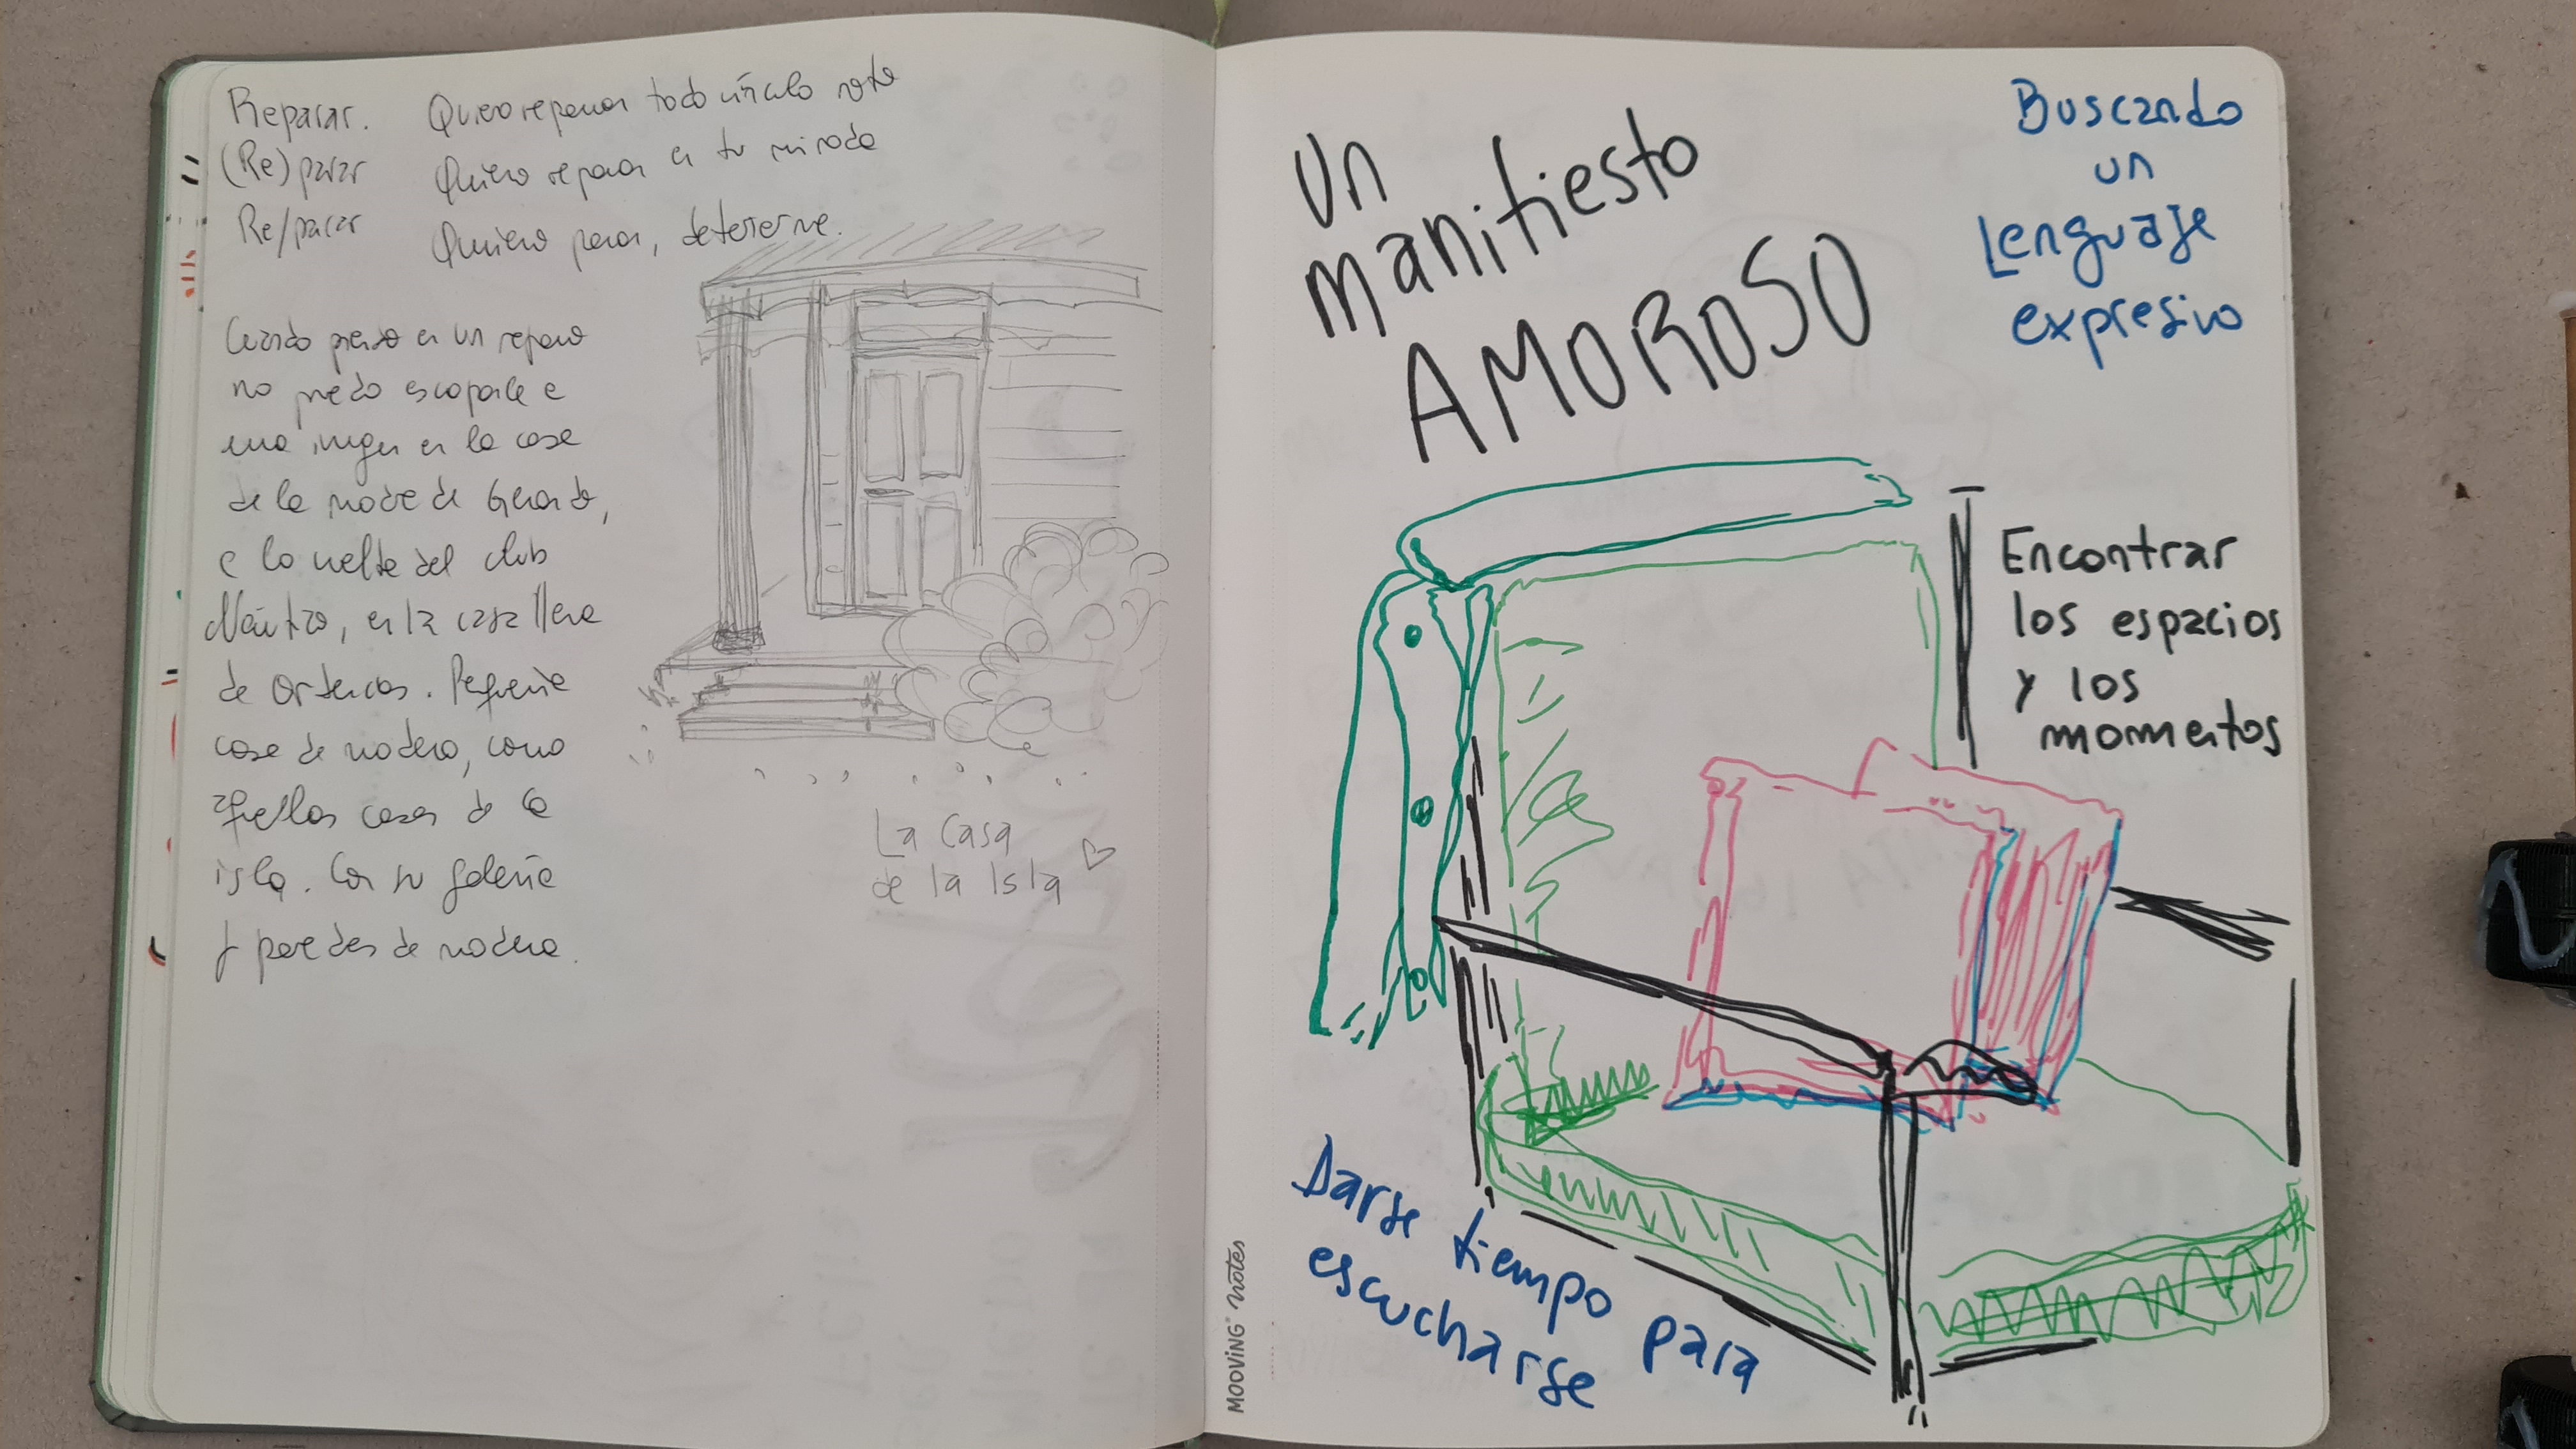 Reparar. Quiero reparar todo vínculo roto
(Re)parar Quiero reparar en tu mirada
Re/parar Quiero parar, detenerme.
Cuando pienso en un reparo
no puedo escaparle a
una imagen en la casa
de la madre de Gerardo,
a la vuelta del club
Náutico, en la casa llena
de ortencias. Pequeña
casa de madera, como
aquellas casas de la
isla. Con su galería
y paredes de madera.
La Casa
de la Isla
Un
manifiesto
AMOROSO
Buscando
un
Lenguaje
expresivo
Encontrar
los espacios
y los
momentos
Darse tiempo para
escucharse
MOOVING notes